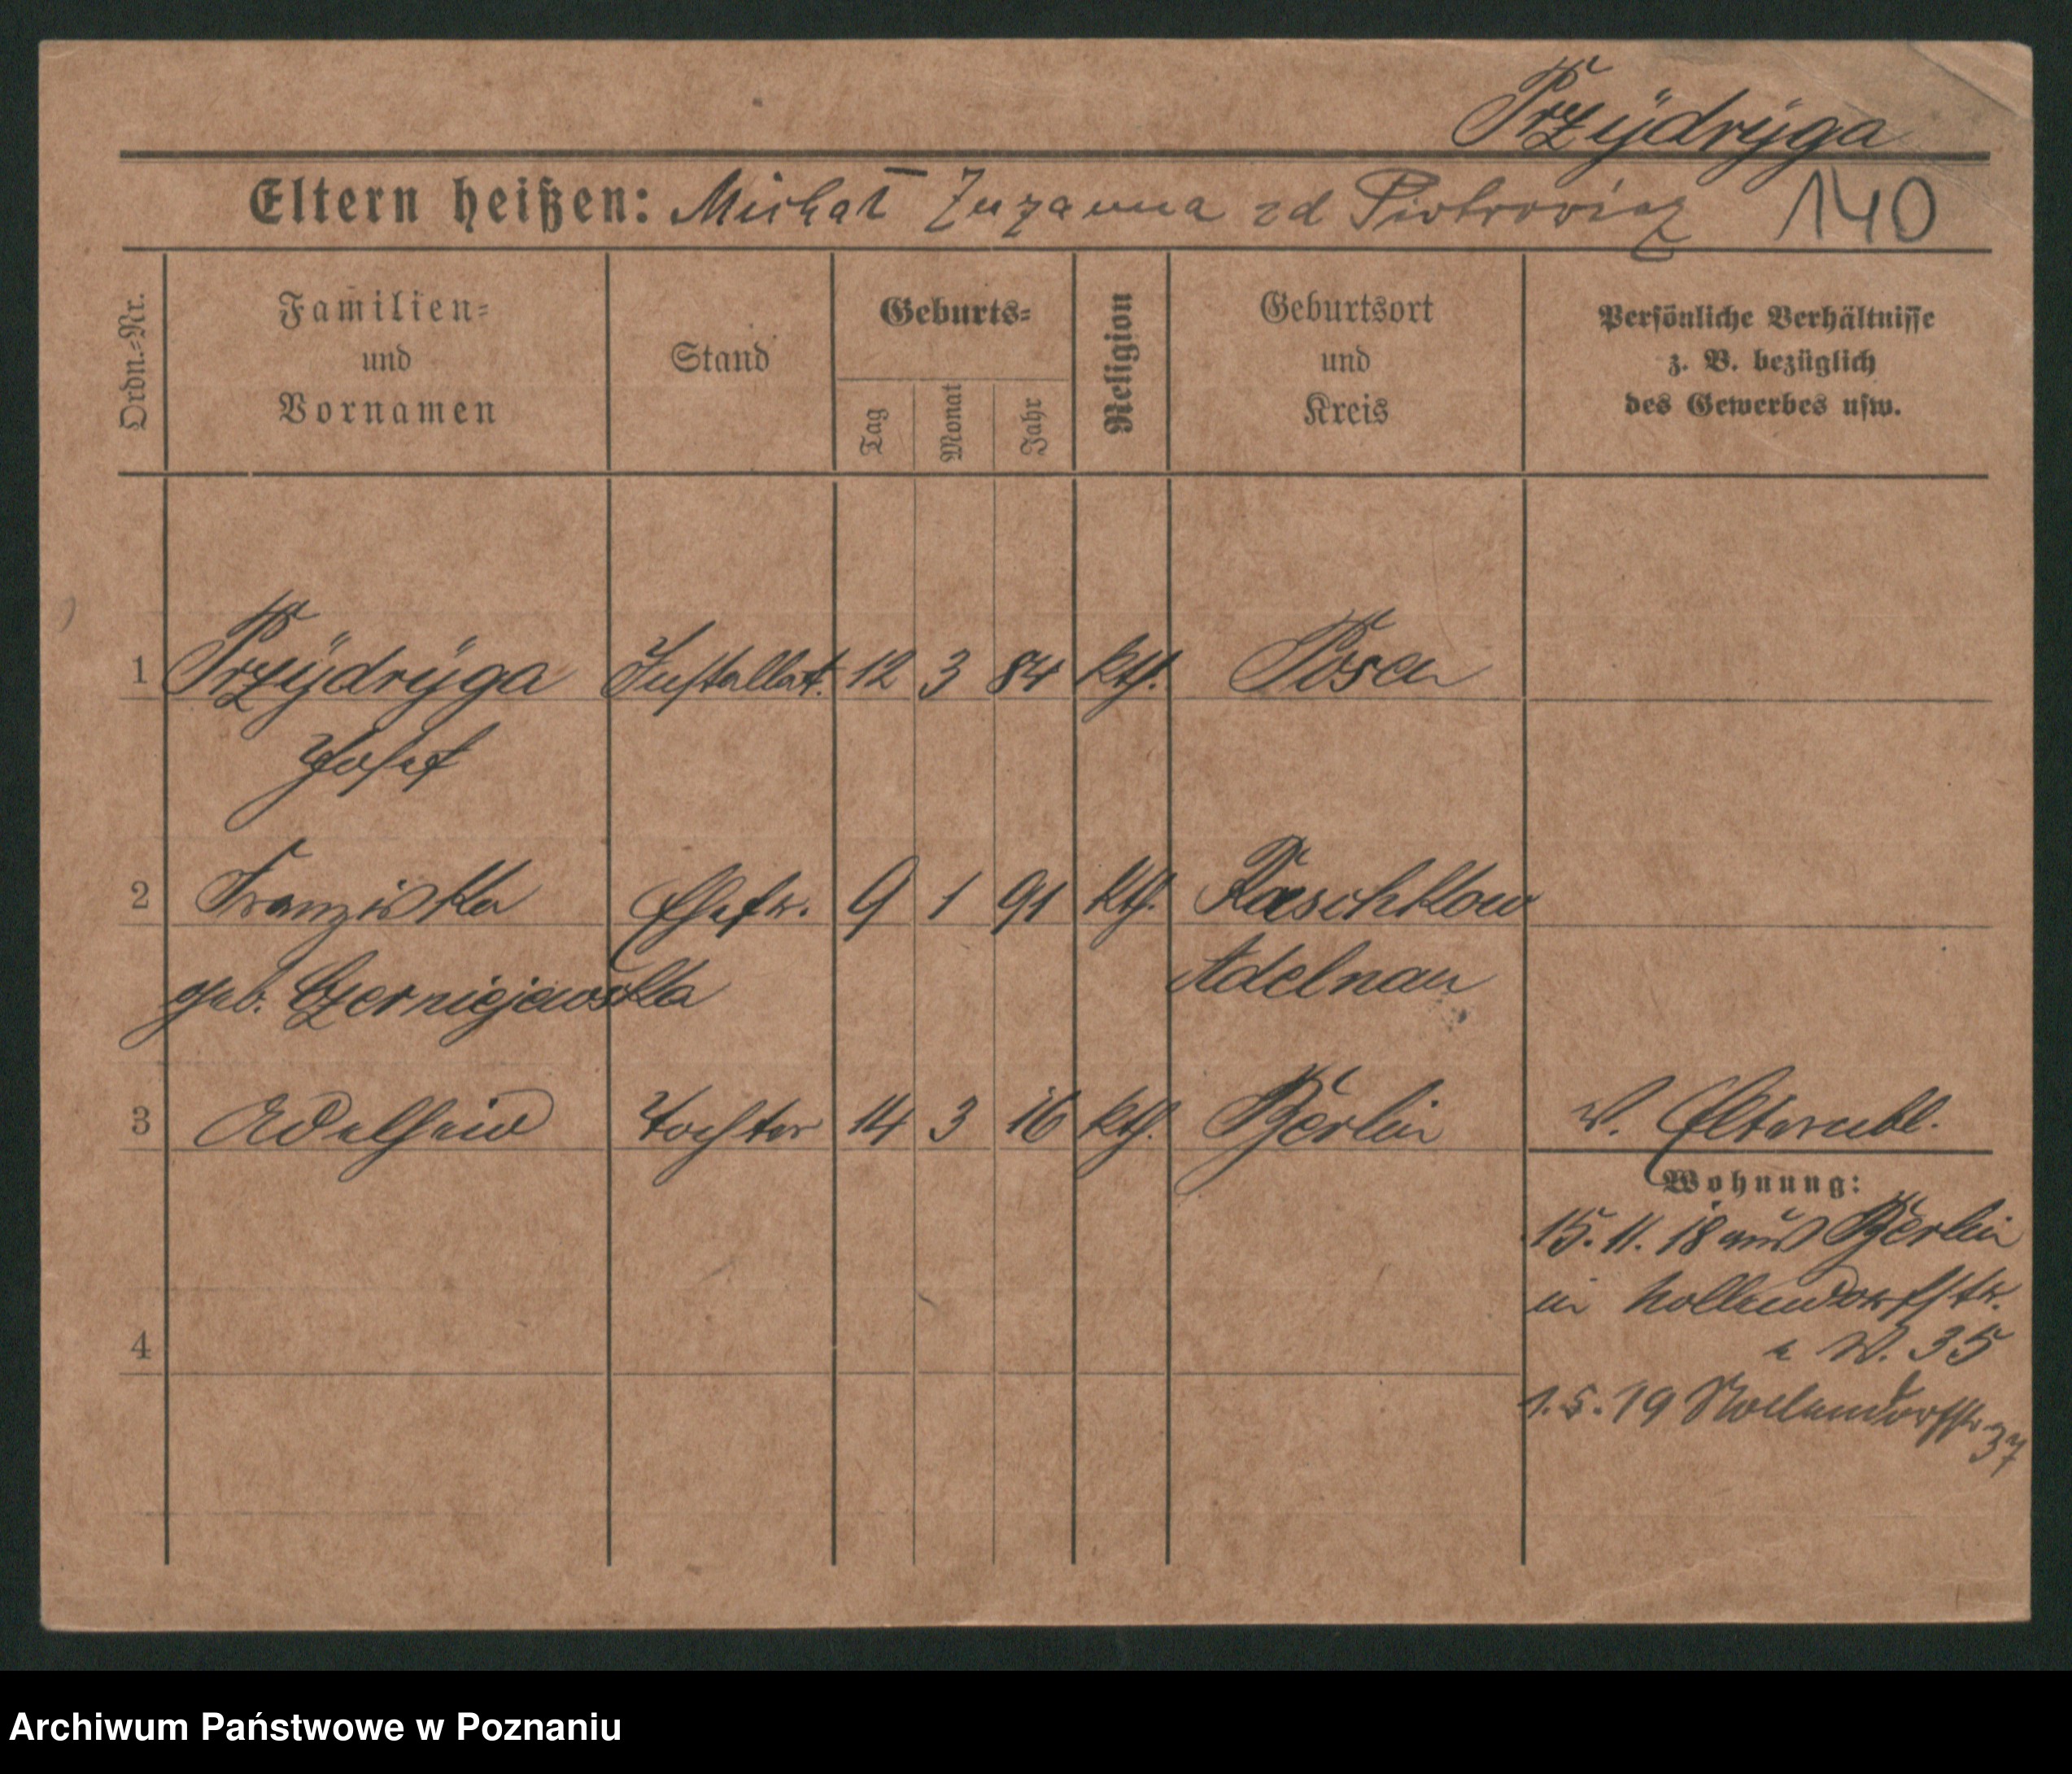 Przÿdrÿga
Eltern heißen: Michał Zuzanna zd Piotrowicz 140
Ordn.-Nr. Familien- und Vornamen Stand Geburts- Tag Monat Jahr Religion Geburtsort und Kreis Persönliche Verhältnisse z. B. bezüglich des Gewerbes usw.
1 Przÿdrÿga Installat. 12 3 84 kth. Posen
Josef
2 Franziska Ehefr. 9 1 91 kth. Raschkow
geb. Czerniejewska Adelnau
3 Adelheid Tochter 14 3 16 kth. Berlin
Wohnung:
15.11.18 aus Berlin
in Nollendorfstr.
W. 35
4
1.5.19 Nollendorfstr 37
Archiwum Państwowe w Poznaniu